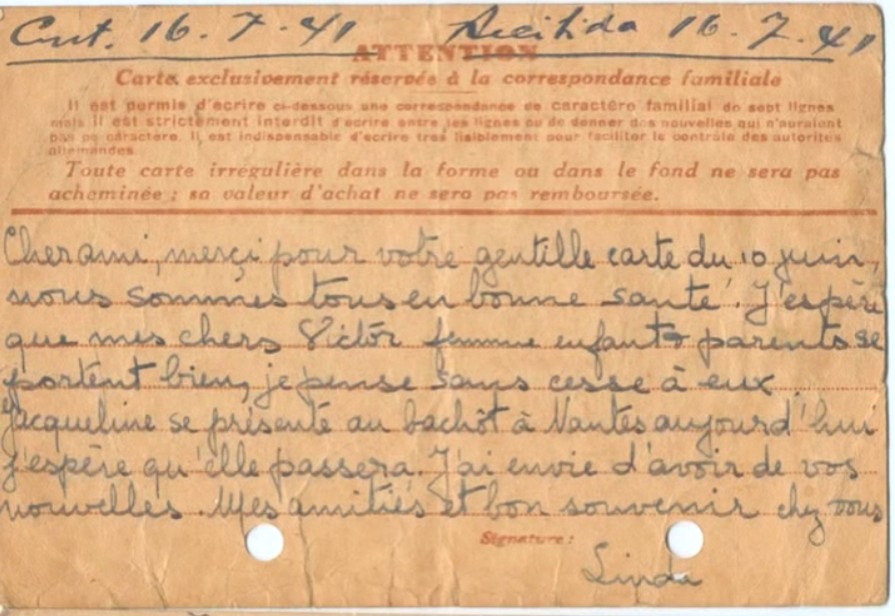 Cnt. 16.7.41 16.7.41
ATTENTION
Carte exclusivement réservée à la correspondance familiale
Il est permis d'ecrire ci-dessous une correspondance de caractère familial de sept lignes
mais il est strictement interdit d'ecrire entre les lignes ou de donner des nouvelles qui n'auraient
pas ce caractère. Il est indispensable d'ecrire tres lisiblement pour faciliter le contrôle des autorités
allemandes
Toute carte irrégulière dans la forme ou dans le fond ne sera pas
acheminée ; sa valeur d'achat ne sera pas remboursée.
Cher ami, merçi pour votre gentille carte du 10 juin,
nous sommes tous en bonne santé. J'espère
que mes chers Victor femme enfants parents se
portent bien, je pense sans cesse à eux
Jacqueline se présente au bachot à Nantes aujourd'hui
j'espère qu'elle passera. J'ai envie d'avoir de vos
nouvelles. Mes amitiés et bon souvenir chez vous
Signature :
Linda